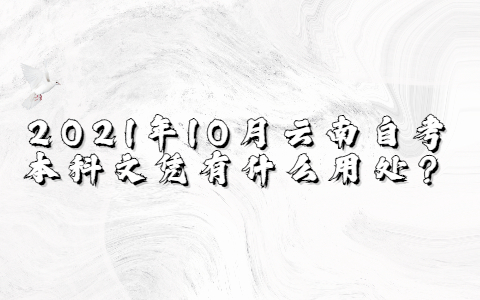 2021年10月云南自考
本科文凭有什么用处?